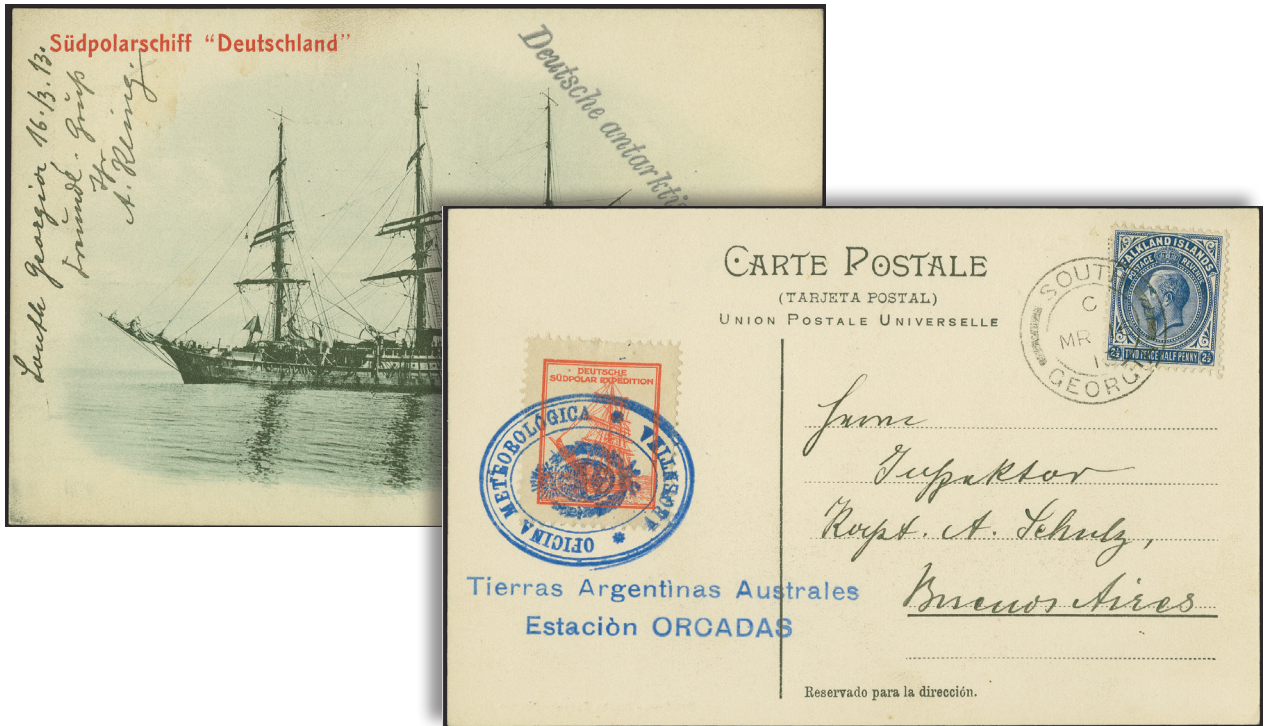 Südpolarschiff "Deutschland"
South Georgia 16.3.13.
Freundl. Gruß
Ihr
A. Kling.
Deutsche antarkti
CARTE POSTALE
(TARJETA POSTAL)
UNION POSTALE UNIVERSELLE
FALKLAND ISLANDS
POSTAGE REVENUE
2½ TWO PENCE HALF PENNY 2½
SOUTH
C
MR
1
GEORGI
DEUTSCHE
SÜDPOLAR EXPEDITION
OFICINA METEOROLÓGICA
ARG
Tierras Argentinas Australes
Estaciòn ORCADAS
Herrn
Inspektor
Kapt. A. Schulz,
Buenos Aires
Reservado para la dirección.